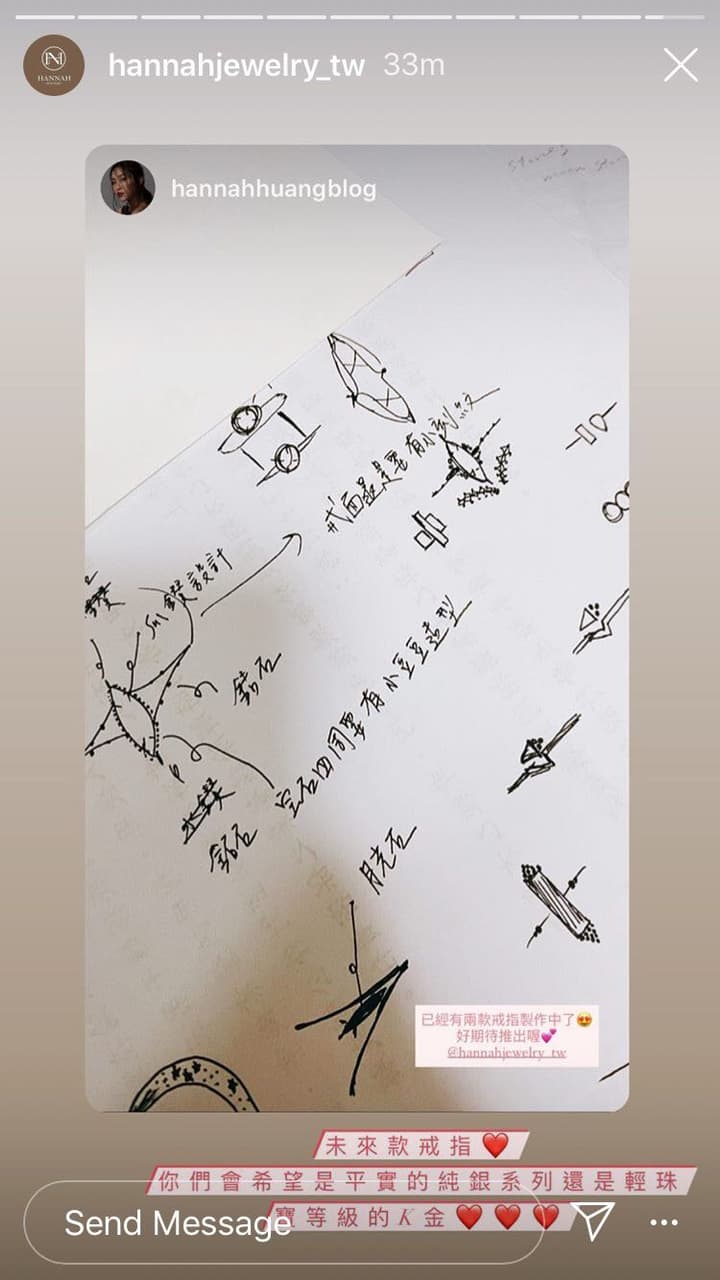 hannahjewelry_tw 33m
HANNAH
hannahhuangblog
戒面盡是要有小刻紋
爪鑲設計
鑽石
寶石四周要有小豆豆造型
鑽石
月光石
已經有兩款戒指製作中了😍
好期待推出喔💕
@hannahjewelry_tw
未來款戒指❤️
你們會希望是平實的純銀系列還是輕珠
寶等級的K金❤️❤️❤️
Send Message